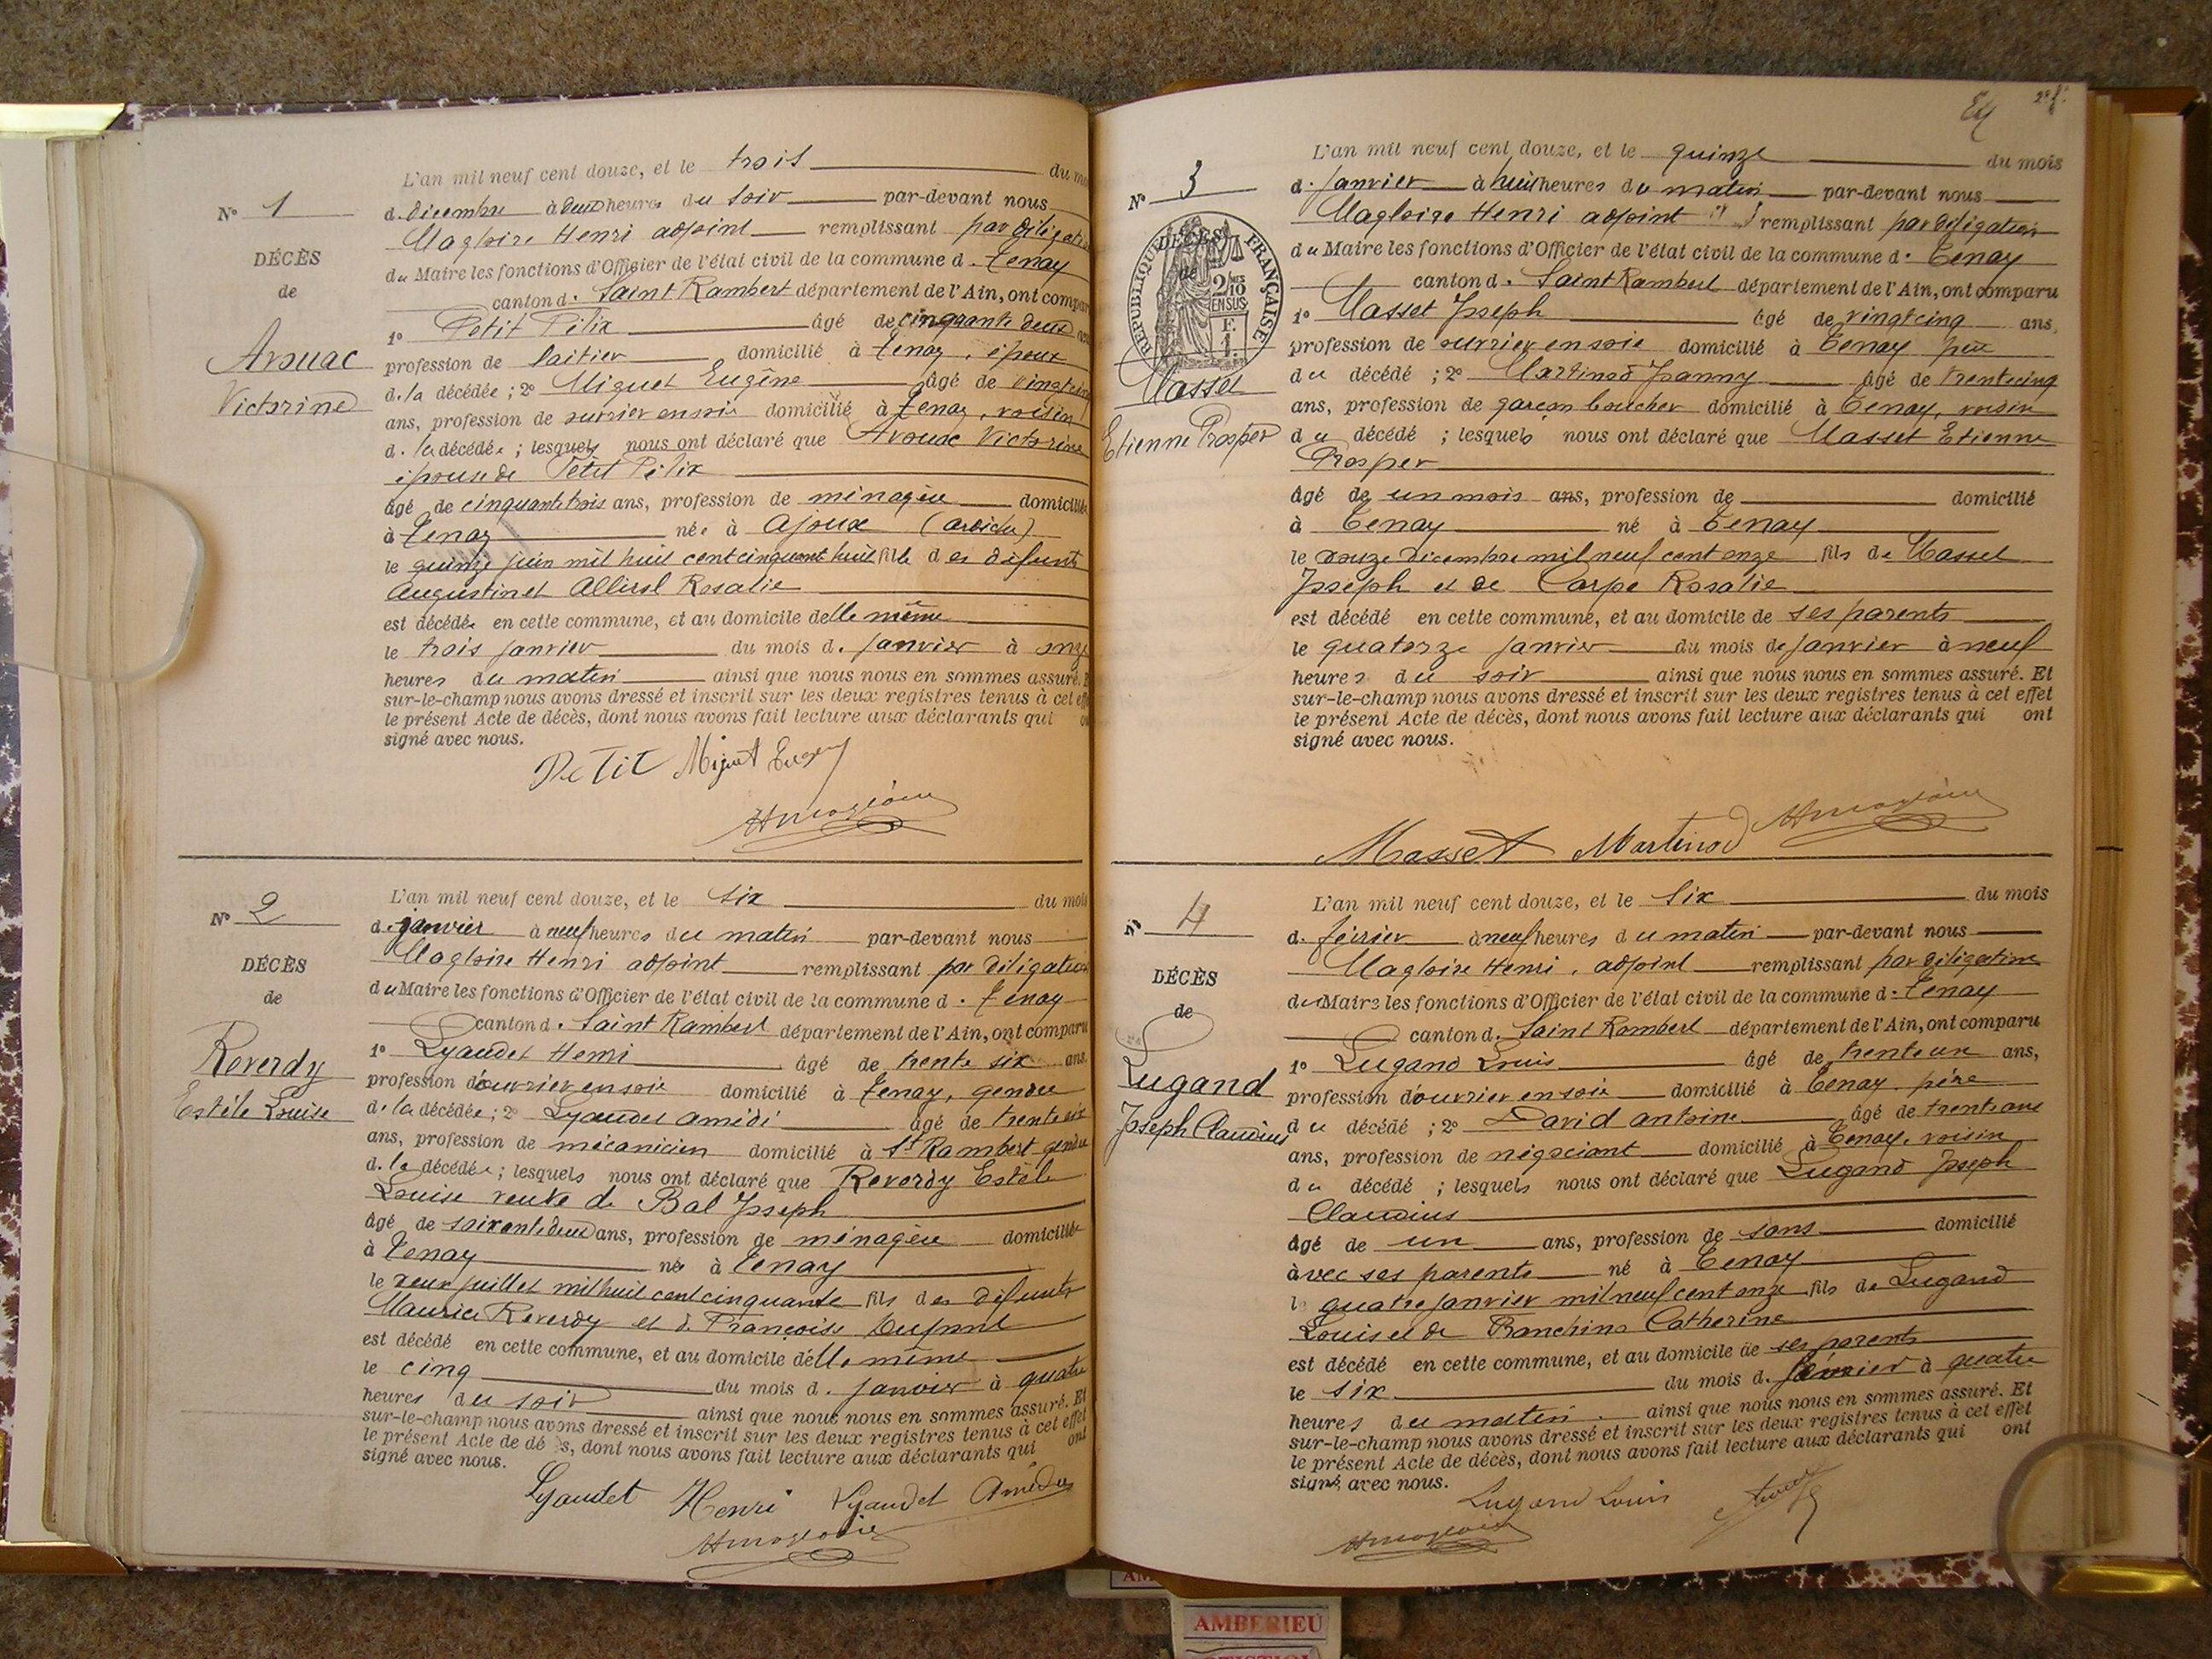 L'an mil neuf cent douze, et le trois du mo
N° 1
d. décembre à deux heures du soir par-devant nous
Magloire Henri adjoint remplissant par délégation
DÉCÈS
du Maire les fonctions d'Officier de l'état civil de la commune d. Tenay
de
canton d. Saint Rambert département de l'Ain, ont compar
1° Petit Félix âgé de cinquante deux ans
Arouac
Victorine
profession de laitier domicilié à Tenay, époux
d. la décédée ; 2° Miguet Eugène âgé de vingt
ans, profession de ouvrier en soie domicilié à Tenay, voisin
d. la décédée ; lesquels nous ont déclaré que Arouac Victorine
épouse de Petit Félix
âgé de cinquante trois ans, profession de ménagère domiciliée
à Tenay née à Ajoux (Ardèche)
le quinze juin mil huit cent cinquante huit fille des défunts
Augustin et Rosalie
est décédée en cette commune, et au domicile delle même
le trois janvier du mois d. janvier à onze
heures du matin ainsi que nous nous en sommes assuré.
sur-le-champ nous avons dressé et inscrit sur les deux registres tenus à cet eff
le présent Acte de décès, dont nous avons fait lecture aux déclarants qui o
signé avec nous.
Petit Miguet
Hmagloire
L'an mil neuf cent douze, et le six du mois
N° 2
d. janvier à neuf heures du matin par-devant nous
Magloire Henri adjoint remplissant par délégation
DÉCÈS
du Maire les fonctions d'Officier de l'état civil de la commune d. Tenay
de
canton d. Saint Rambert département de l'Ain, ont comparu
1° Lyaudet Henri âgé de trente six ans
Reverdy
Estèle Louise
profession d'ouvrier en soie domicilié à Tenay, gendre
d. la décédée ; 2° Lyaudet Amédé âgé de trente six
ans, profession de mécanicien domicilié à St Rambert gendre
d. la décédée ; lesquels nous ont déclaré que Reverdy Estèle
Louise veuve de Bal Joseph
âgé de soixante deux ans, profession de ménagère domiciliée
à Tenay née à Tenay
le deux juillet mil huit cent cinquante fils des défunts
Maurice Reverdy et d. Françoise Dupont
est décédé en cette commune, et au domicile delle même
le cinq du mois d. janvier à quatre
heures du soir ainsi que nous nous en sommes assuré. Et
sur-le-champ nous avons dressé et inscrit sur les deux registres tenus à cet effet
le présent Acte de dé s, dont nous avons fait lecture aux déclarants qui ont
signé avec nous.
Lyaudet Henri Lyaudet Amédée
Hmagloire
2e f.
L'an mil neuf cent douze, et le quinze du mois
N° 3
d. janvier à huit heures du matin par-devant nous
Magloire Henri adjoint remplissant par délégation
RÉPUBLIQUE FRANÇAISE
DÉCÈS
de
2/10 EN SUS
F. 1.
du Maire les fonctions d'Officier de l'état civil de la commune d. Tenay
canton d. Saint Rambert département de l'Ain, ont comparu
1° Masset Joseph âgé de vingt cinq ans,
Masset
Etienne Prosper
profession de ouvrier en soie domicilié à Tenay père
du décédé ; 2° Martinod Joanny âgé de trente cinq
ans, profession de garçon boucher domicilié à Tenay, voisin
du décédé ; lesquels nous ont déclaré que Masset Etienne
Prosper
âgé de un mois ans, profession de domicilié
à Tenay né à Tenay
le douze décembre mil neuf cent onze fils de Masset
Joseph et de Carpe Rosalie
est décédé en cette commune, et au domicile de ses parents
le quatorze janvier du mois de janvier à neuf
heures du soir ainsi que nous nous en sommes assuré. Et
sur-le-champ nous avons dressé et inscrit sur les deux registres tenus à cet effet
le présent Acte de décès, dont nous avons fait lecture aux déclarants qui ont
signé avec nous.
Masset Martinod Hmagloire
L'an mil neuf cent douze, et le six du mois
N° 4
d. février à neuf heures du matin par-devant nous
Magloire Henri, adjoint remplissant par délégation
DÉCÈS
du Maire les fonctions d'Officier de l'état civil de la commune d. Tenay
de
canton d. Saint Rambert département de l'Ain, ont comparu
1° Lugand Louis âgé de trente un ans,
Lugand
Joseph Claudius
profession d'ouvrier en soie domicilié à Tenay. père
du décédé ; 2° David Antoine âgé de trente ans
ans, profession de négociant domicilié à Tenay, voisin
du décédé ; lesquels nous ont déclaré que Lugand Joseph
Claudius
âgé de un ans, profession de sans domicilié
avec ses parents né à Tenay
le quatre janvier mil neuf cent onze fils de Lugand
Louis et de Catherine
est décédé en cette commune, et au domicile de ses parents
le six du mois d. février à quatre
heures du matin. ainsi que nous nous en sommes assuré. Et
sur-le-champ nous avons dressé et inscrit sur les deux registres tenus à cet effet
le présent Acte de décès, dont nous avons fait lecture aux déclarants qui ont
signé avec nous.
Lugand Louis
Hmagloire
AMBERIEU